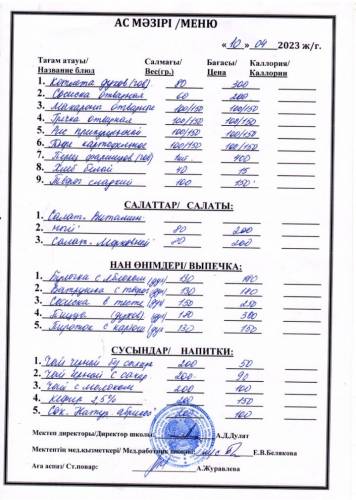 АС МӘЗІРІ /МЕНЮ
« 10 » 04 2023 ж/г.
Тағам атауы/ Салмағы/ Бағасы/ Каллория/
Название блюд Вес(гр.) Цена Каллории
1. Котлета 80 300
2. Сосиска отварная 60 200
3. Макароны отварные 100/150 100/150
4. Гречка отварная 100/150 100/150
5. Рис припущенный 100/150 100/150
6. Пюре картофельное 100/150 100/150
7. Перец 400
8. Хлеб белый 40 15
9. сладкий 100 150
САЛАТТАР/ САЛАТЫ:
1. Салат. Витамин.
2. 80 200
3. Салат. 80 200
НАН ӨНІМДЕРІ/ ВЫПЕЧКА:
1. Булочка с яблоком 130
2. Ватрушка с 130 180
3. Сосиска в тесте 130 250
4. Пицца 120 300
5. Пирожок с 130 150
СУСЫНДАР/ НАПИТКИ:
1. Чай черный без сахара 200 50
2. Чай черный с сахар 200 90
3. Чай с молоком 200 100
4. Кефир 2,5% 200 150
5. Сок. 200 100
Мектеп директоры/Директор школы: А.Д.Дулат
Мектептің мед.қызметкері/ Мед.работник школы: Е.В.Белякова
Аға аспаз/ Ст.повар: А.Журавлева